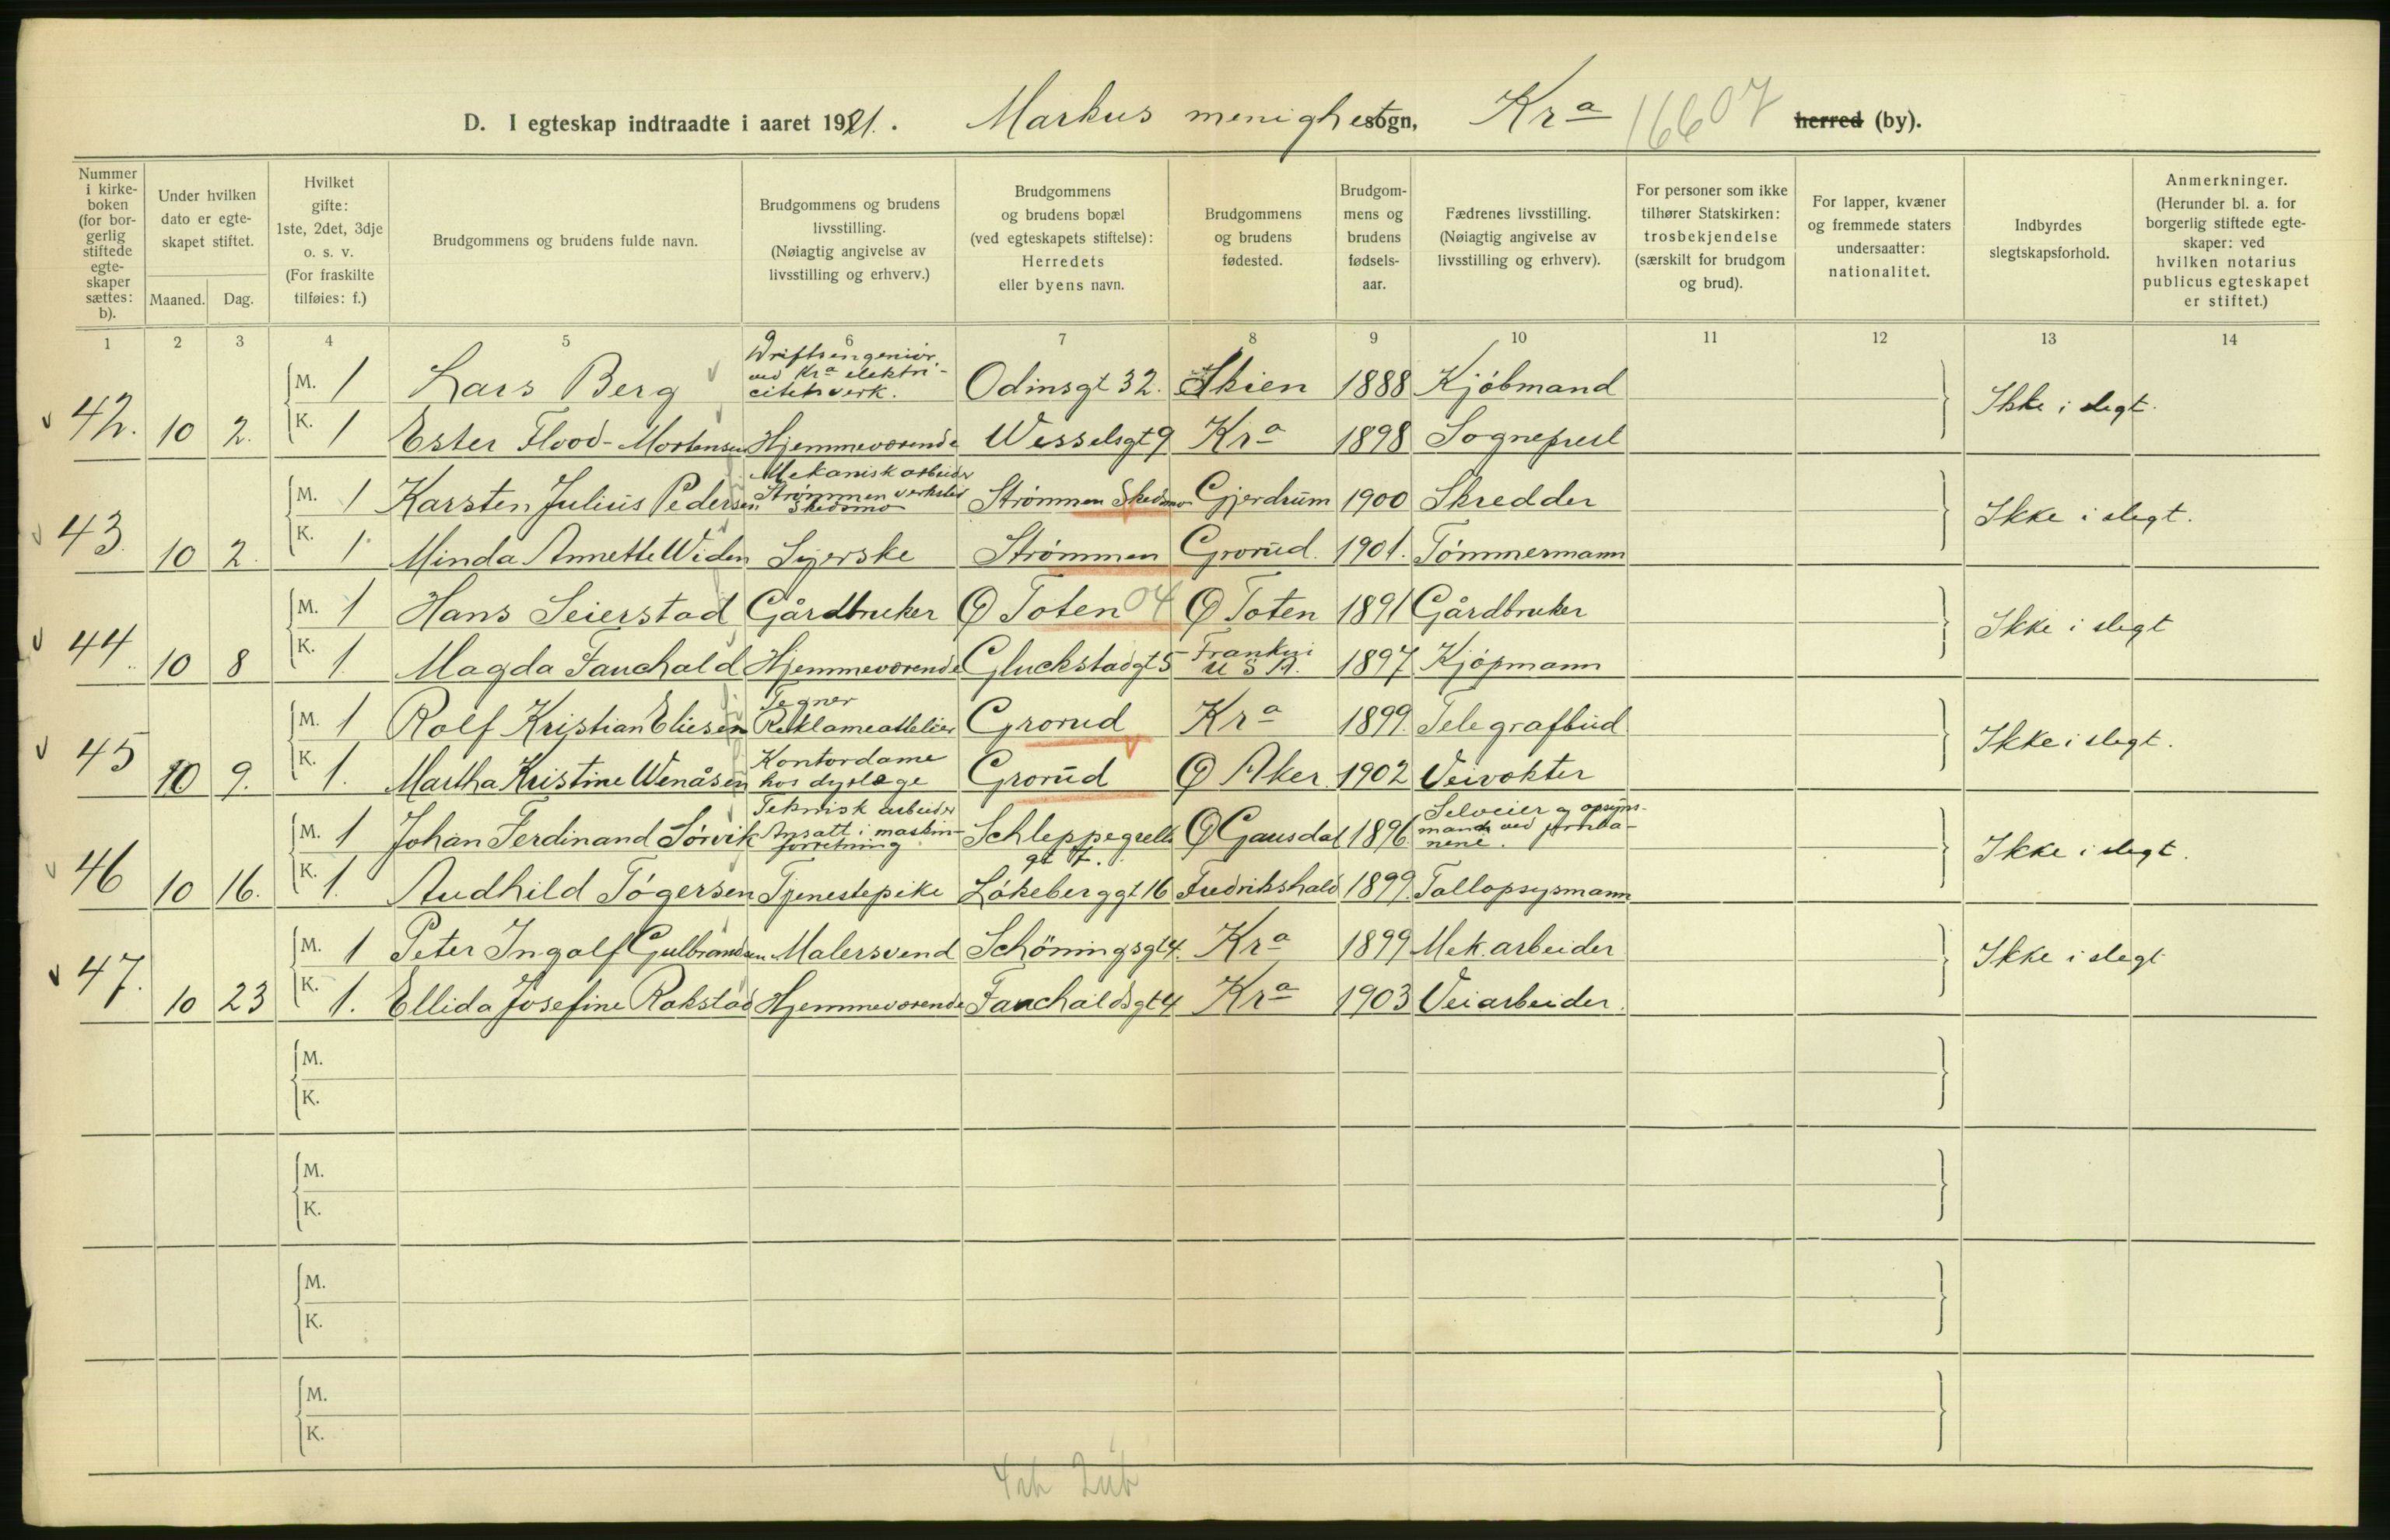 D. I egteskap indtraadte i aaret 1921. Markus menighet sogn, Kra 16607 herred (by).
Nummer i kirkeboken (for borgerlig stiftede egteskaper sættes: b).
Under hvilken dato er egteskapet stiftet. Maaned. Dag.
Hvilket gifte: 1ste, 2det, 3dje o. s. v. (For fraskilte tilføies: f.)
Brudgommens og brudens fulde navn.
Brudgommens og brudens livsstilling. (Nøiagtig angivelse av livsstilling og erhverv.)
Brudgommens og brudens bopæl (ved egteskapets stiftelse): Herredets eller byens navn.
Brudgommens og brudens fødested.
Brudgommens og brudens fødselsaar.
Fædrenes livsstilling. (Nøiagtig angivelse av livsstilling og erhverv).
For personer som ikke tilhører Statskirken: trosbekjendelse (særskilt for brudgom og brud).
For lapper, kvæner og fremmede staters undersaatter: nationalitet.
Indbyrdes slegtskapsforhold.
Anmerkninger. (Herunder bl. a. for borgerlig stiftede egteskaper: ved hvilken notarius publicus egteskapet er stiftet.)
1 2 3 4 5 6 7 8 9 10 11 12 13 14
M. 1 Lars Berg Driftsingeniør ved Kra elektricitetsverk. Odinsgt 32. Skien 1888 Kjøbmand
42. 10 2. K. 1 Ester Flood-Mortensen Hjemmeværende Wesselsgt 9 Kra 1898 Sogneprest Ikke i slegt.
M. 1 Karsten Julius Pedersen Mekanisk arbeider Strømmen verksted Skedsmo Strømmen Skedsmo Gjerdrum 1900 Skredder
43. 10 2. K. 1 Minda Annette Widen Syerske Strømmen Grorud. 1901. Tømmermann Ikke i slegt.
M. 1 Hans Seierstad Gårdbruker Ø Toten 04 Ø Toten 1891 Gårdbruker
44. 10 8 K. 1 Magda Fauchald Hjemmeværende Gluckstadgt 5 U S A. 1897 Kjøpmann Ikke i slegt
M. 1 Rolf Kristian Eliesen Tegner Reklameattelier Grorud Kra 1899. Telegrafbud
45 10 9. K. 1. Martha Kristine Wenåsen Kontordame hos dyrlæge Grorud Ø Aker. 1902 Veivokter Ikke i slegt.
M. 1 Johan Ferdinand Sørvik Teknisk arbeider Ansatt i maskinforretning Schleppegrells gt 7. Ø Gausdal 1896 Selveier og opsynsmand ved jernbanene.
46 10 16. K. 1. Audhild Tøgersen Tjenestepike Løkeberggt 16 Fredrikshald 1899. Tollopsysmann Ikke i slegt.
M. 1 Peter Ingolf Gulbrandsen Malersvend Schöningsgt 4. Kra 1899 Mek. arbeider
47. 10 23 K. 1. Ellida Josefine Rakstad Hjemmeværende Fauchaldsgt 4 Kra 1903 Veiarbeider. Ikke i slegt
M.
K.
M.
K.
M.
K.
M.
K.